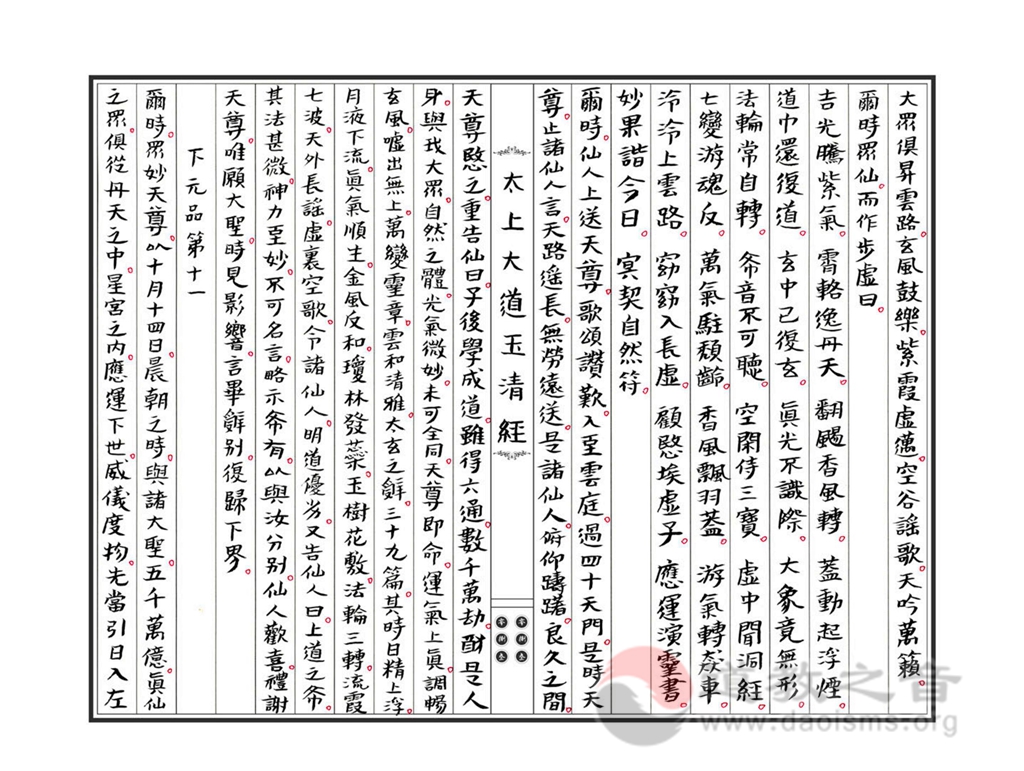 大眾俱昇雲路。玄風鼓樂。紫霞虛邁。空谷謠歌。天吟萬籟。
爾時眾仙。而作步虛曰。
吉光騰紫氣。霄輅逸丹天。翻飈香風轉。蓋動起浮煙
道中還復道。玄中已復玄。真光不識際。大象竟無形
法輪常自轉。希音不可聽。空閑侍三寶。虛中聞洞經
七變游魂反。萬氣駐頹齡。香風飄羽蓋。游氣轉猋車
泠泠上雲路。窈窈入長虛。顧愍埃虛子。應運演靈書。
妙果諧今日。冥契自然符。
爾時。仙人上送天尊。歌頌讚歎。入至雲庭。過四十天門。是時天
尊。止諸仙人言。天路遥長。無勞遠送。是諸仙人。俯仰躊躇。良久之間。
太上大道玉清經
天尊愍之。重告仙曰。子後學成道。雖得六通。數千萬劫。酎是人
身。與我大眾。自然之體。光氣微妙。未可全同。天尊即命。運氣上真。調暢
玄風。噓出無上。萬變靈章。雲和清雅。太玄之辭。三十九篇。其時日精上浮。
月液下流。真氣順生。金風反和。瓊林發蘂。玉樹花敷。法輪三轉。流霞
七波。天外長謠。虛裏空歌。令諸仙人。明道優劣。又告仙人曰。上道之希。
其法甚微。神力至妙。不可名言。略示希有。以與汝分別。仙人歡喜。禮謝
天尊。唯願大聖。時見影響。言畢辭別。復歸下界。
下元品第十一
爾時。眾妙天尊。以十月十四日。晨朝之時。與諸大聖。五千萬億。真仙
之眾。俱從丹天之中。星宮之内。應運下世。威儀度物。先當引日入左
道教之音
www.daoisms.org